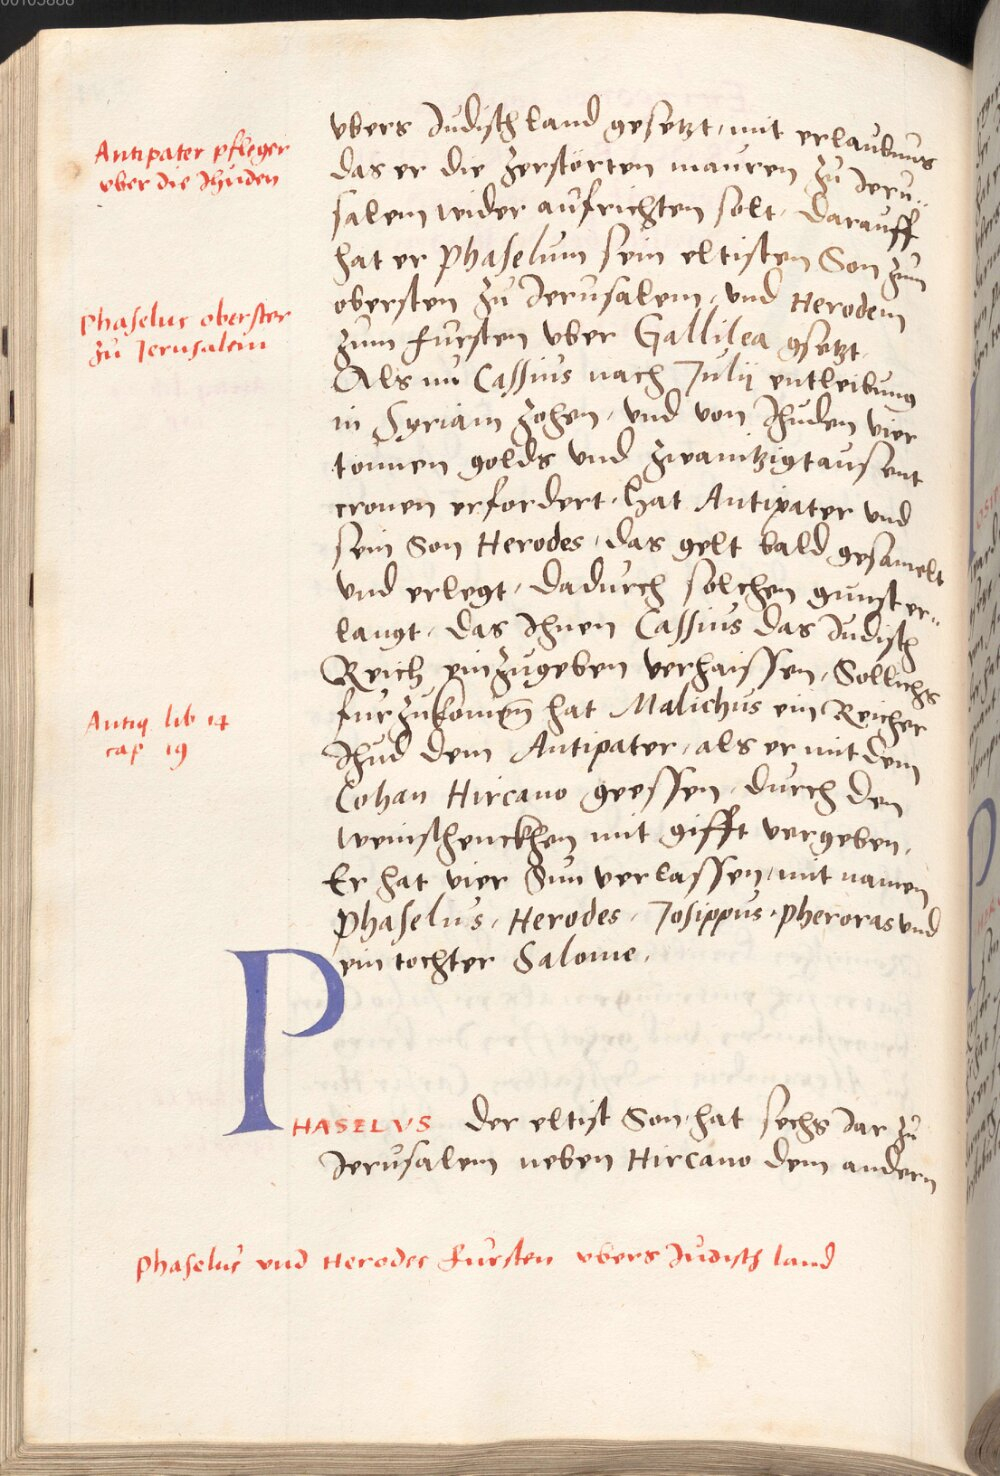 Antipater pfleger
vber die Jhuden
Phaselus oberster
zu Jerusalem
Antiq. lib 14
cap 19
vbers Judisch land gesetzt, mit erlaubnus
das er die zerstörten mauren zu Jeru,,
salem wider aufrichten solt, Darauff
hat er Phaselum sein eltisten Son zum
obersten zu Jerusalem, vnd Herodem
zum fursten vber Gallilea gsetzt.
Als nu Cassius nach Julij entleibung
in Syriam zohen, vnd von Jhuden vier
tonnen golds vnd zwaintzigtausent
cronen erfordert, hat Antipater vnd
sein Son Herodes, das gelt bald gesamelt
vnd erlegt, dadurch solchen gunst er,,
langt, das Jhnen Cassius das Judisch
Reich einzugeben verhaissen, Sollichs
furzukomen hat Malichus ein Reicher
Jhud dem Antipater, als er mit dem
Cohan Hircano geessen, durch den
weinschenckhen mit gifft vergeben.
Er hat vier Sun verlassen, mit namen
Phaselus, Herodes, Josippus, Pheroras vnd
ein tochter Salome.
PHASELVS der eltist Son, hat sechs Jar zu
Jerusalem neben Hircano dem andern
Phaselus vnd Herodes fursten vbers Judisch land